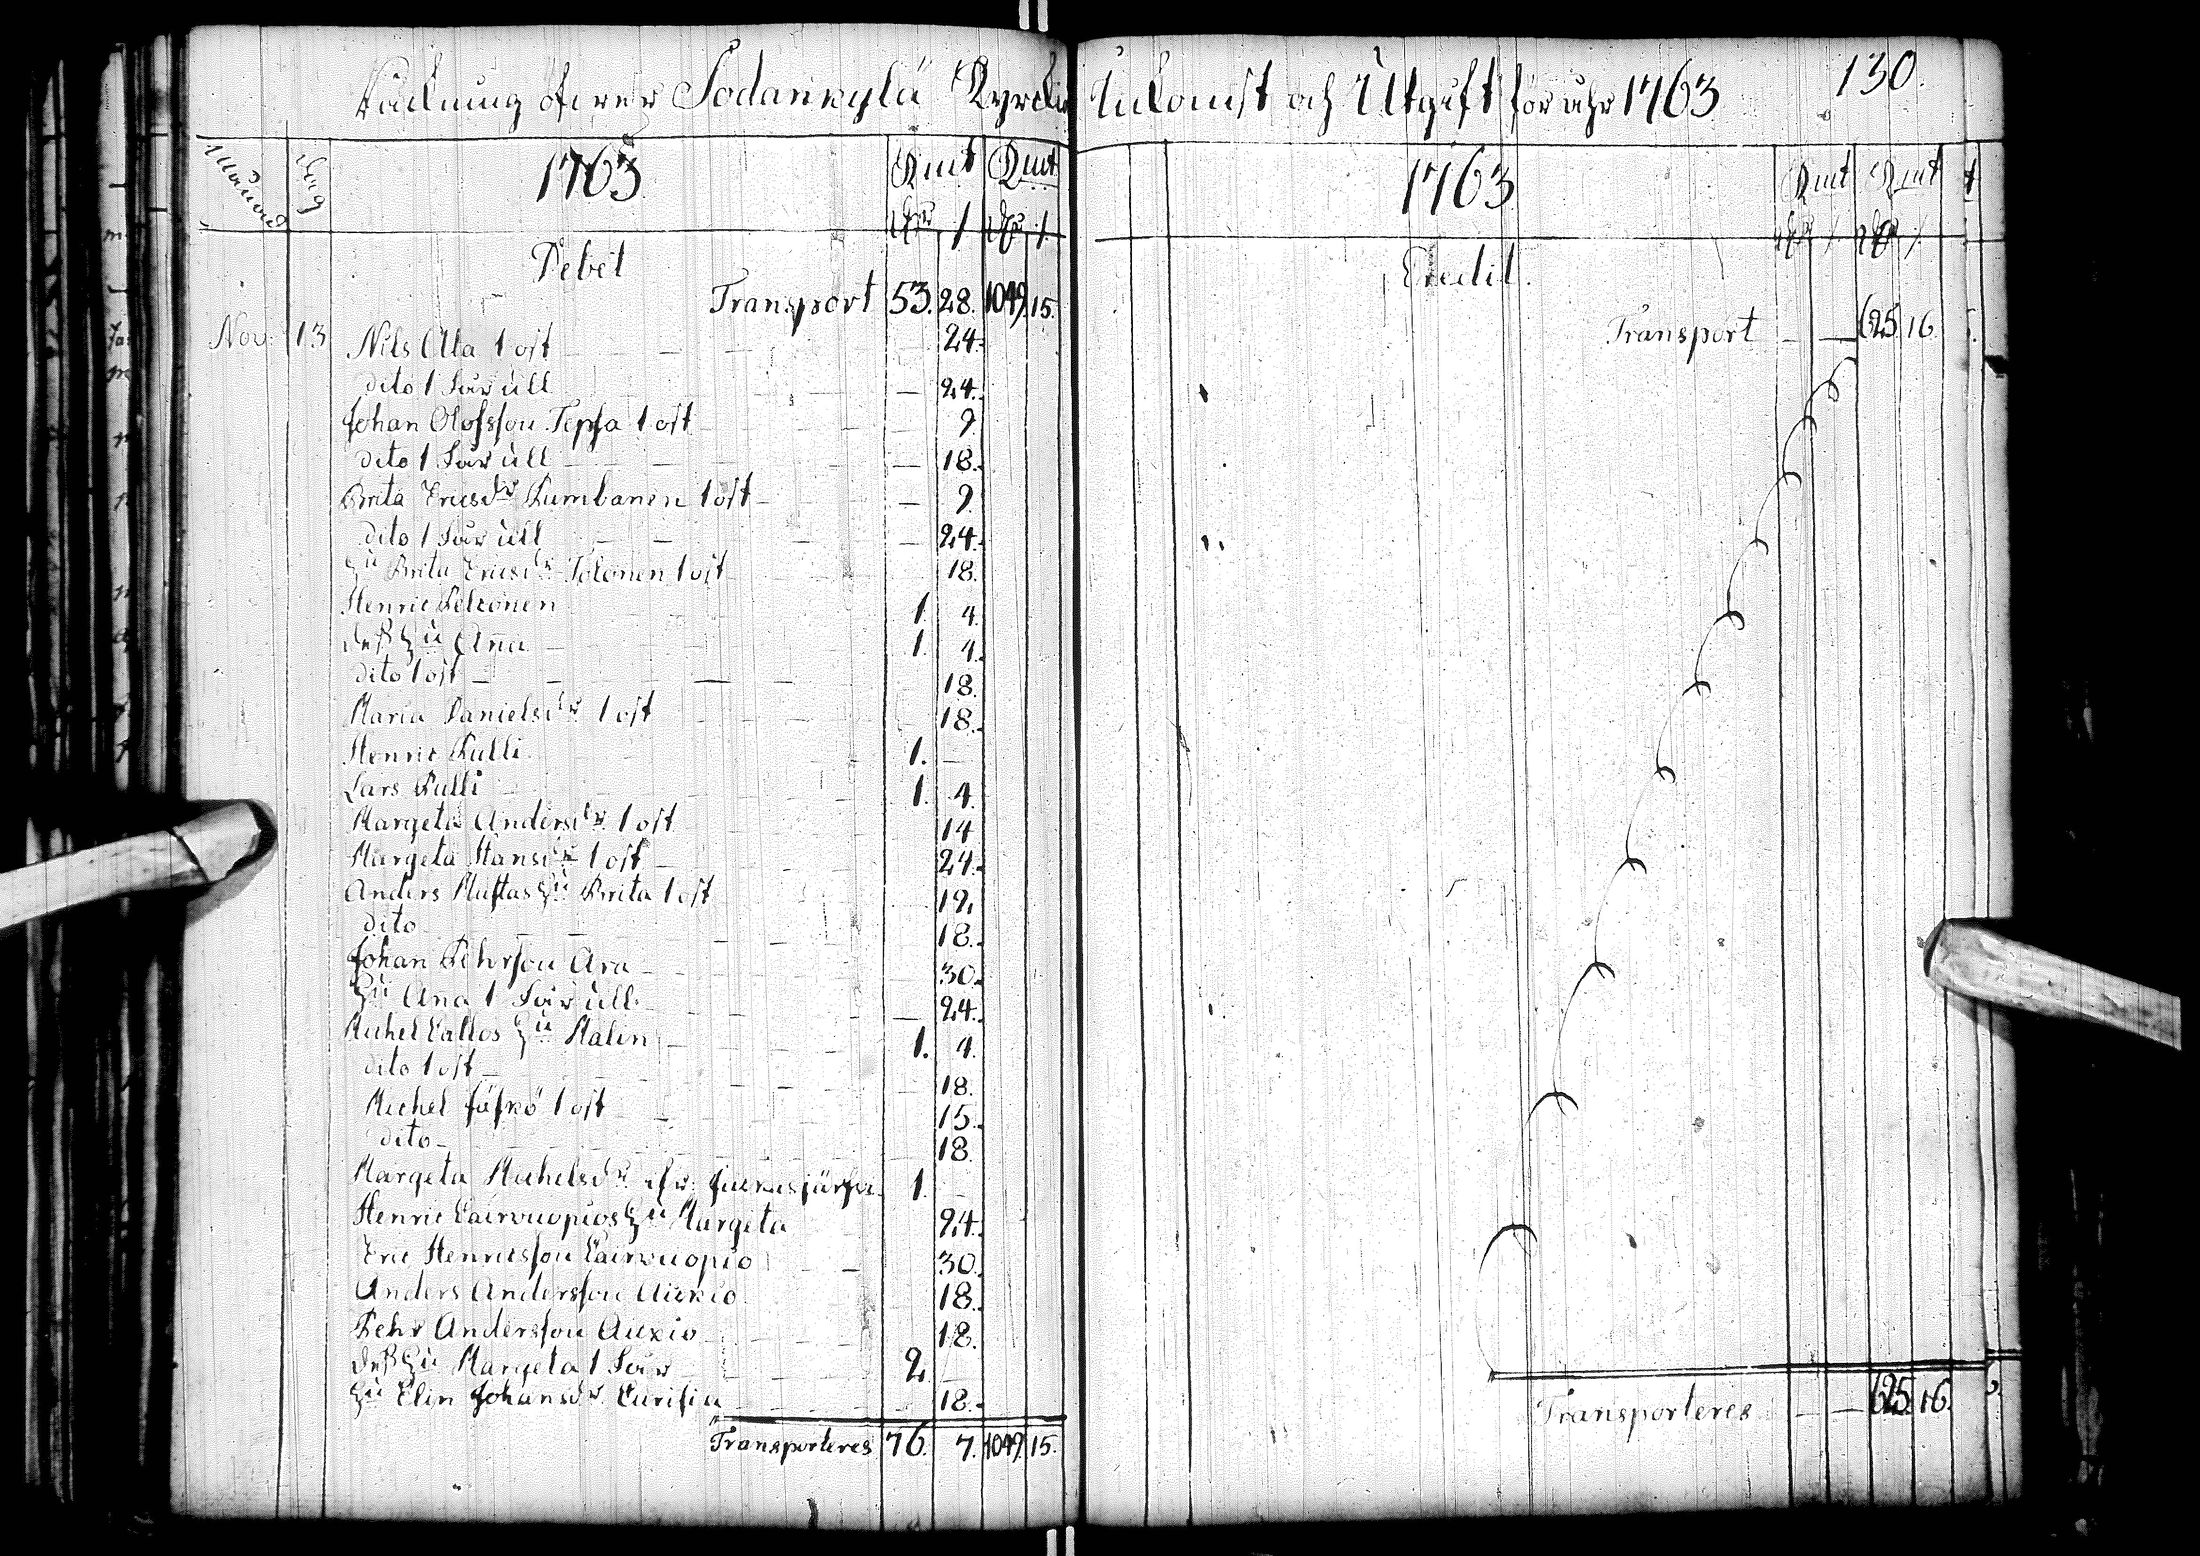 Räkning öfver Sodankylä Kyrckio Inkomst och Utgift för åhr 1763
130.
Månad Dag 1763 Kmt Kmt
Dr / Dr /
Debet
Transport 53. 28. 1049. 15.
Nov. 13 Nils Ala 1 ost 24.
dito 1 Får ull 24.
Johan Olofsson Tepsa 1 ost 9.
dito 1 Får ull 18.
Brita Ericsdr Kumbanen 1 ost 9.
dito 1 Får ull 24.
hu Brita Ericsdr Tolonen 1 ost 18.
Henric Pelkonen 1. 4.
deß hu Aña 1. 4.
dito 1 ost 18.
Maria Danielsdr 1 ost 18.
Henric Pulli 1.
Lars Pulli 1. 4.
Margeta Andersdr 1 ost 14
Margeta Hansdr 1 ost 24.
Anders Mustas hu Brita 1 ost 12.
dito 18.
Johan Pehrsou Ara 30.
hu Ana 1 Får ull 24.
Michel Callos hu Malin 1. 4.
dito 1 ost 18.
Michel 1 ost 15.
dito 18.
Margeta Michelsdr 1.
Henric Cairvuopios hu Margeta 24.
Eric Henricsson Cairvuopio 30.
Anders Andersson Auxio 18.
Pehr Andersson Auxio 18.
deß hu Margeta 1 Får 2.
hu Elin Johansdr 18.
Transporteres 76. 7. 1049. 15.
1763 Kmt Kmt
Dr / Dr /
Credit.
Transport 625. 16.
Transporteres 625. 16.